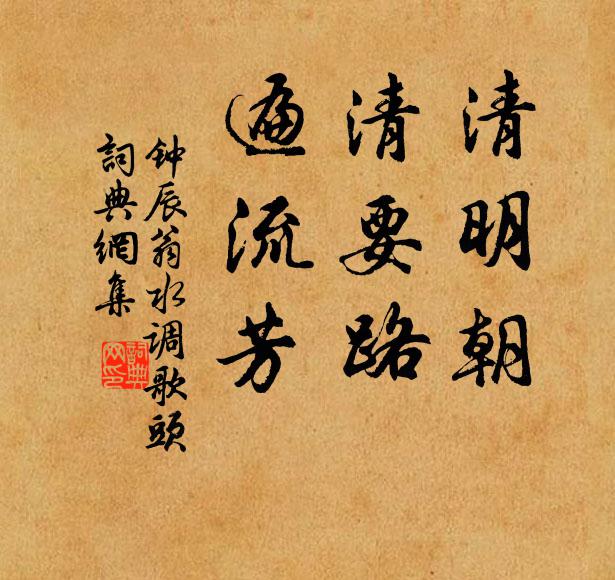 清明朝
清要路
遍流芳
钟辰翁水调歌頭
詞典網集
詞典
网印